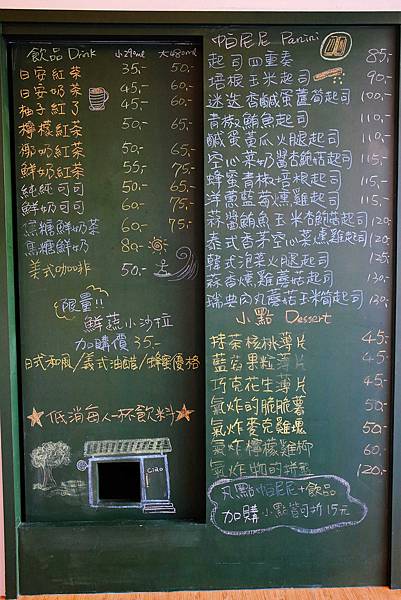 飲品 Drink 小290ml 大480ml
日安紅茶 35,- 50,-
日安奶茶 45,- 60,-
柚子紅了 45,- 60,-
檸檬紅茶 50,- 65,-
椰奶紅茶 50,- 65,-
鮮奶紅茶 55,- 75,-
純純可可 50,- 65,-
鮮奶可可 60,- 75,-
焦糖鮮奶茶 60,- 75,-
焦糖鮮奶 80,-
美式咖啡 50,-
限量!!
鮮蔬小沙拉
加購價 35,-
日式和風/義式油醋/蜂蜜優格
低消每人一杯飲料
CIAO
帕尼尼 Panini
起司四重奏 85,-
培根玉米起司 90,-
迷迭香鹹蛋蘆筍起司 100,-
青椒鮪魚起司 110,-
鹹蛋黃瓜火腿起司 110,-
空心菜奶醬杏鮑菇起司 115,-
蜂蜜青椒培根起司 115,-
洋蔥藍莓燻雞起司 115,-
蒜醬鮪魚玉米杏鮑菇起司 120,-
泰式香茅空心菜燻雞起司 120,-
韓式泡菜火腿起司 125,-
蒜香燻雞蘑菇起司 130,-
瑞典肉丸蘑菇玉米筍起司 130,-
小點 Dessert
抹茶核桃薄片 45,-
藍莓果粒薄片 45,-
巧克花生薄片 45,-
氣炸的脆脆薯 50,-
氣炸麥克雞塊 50,-
氣炸檸檬雞柳 60,-
氣炸物的拼盤 120,-
凡點帕尼尼+飲品
加購小點皆可折15元